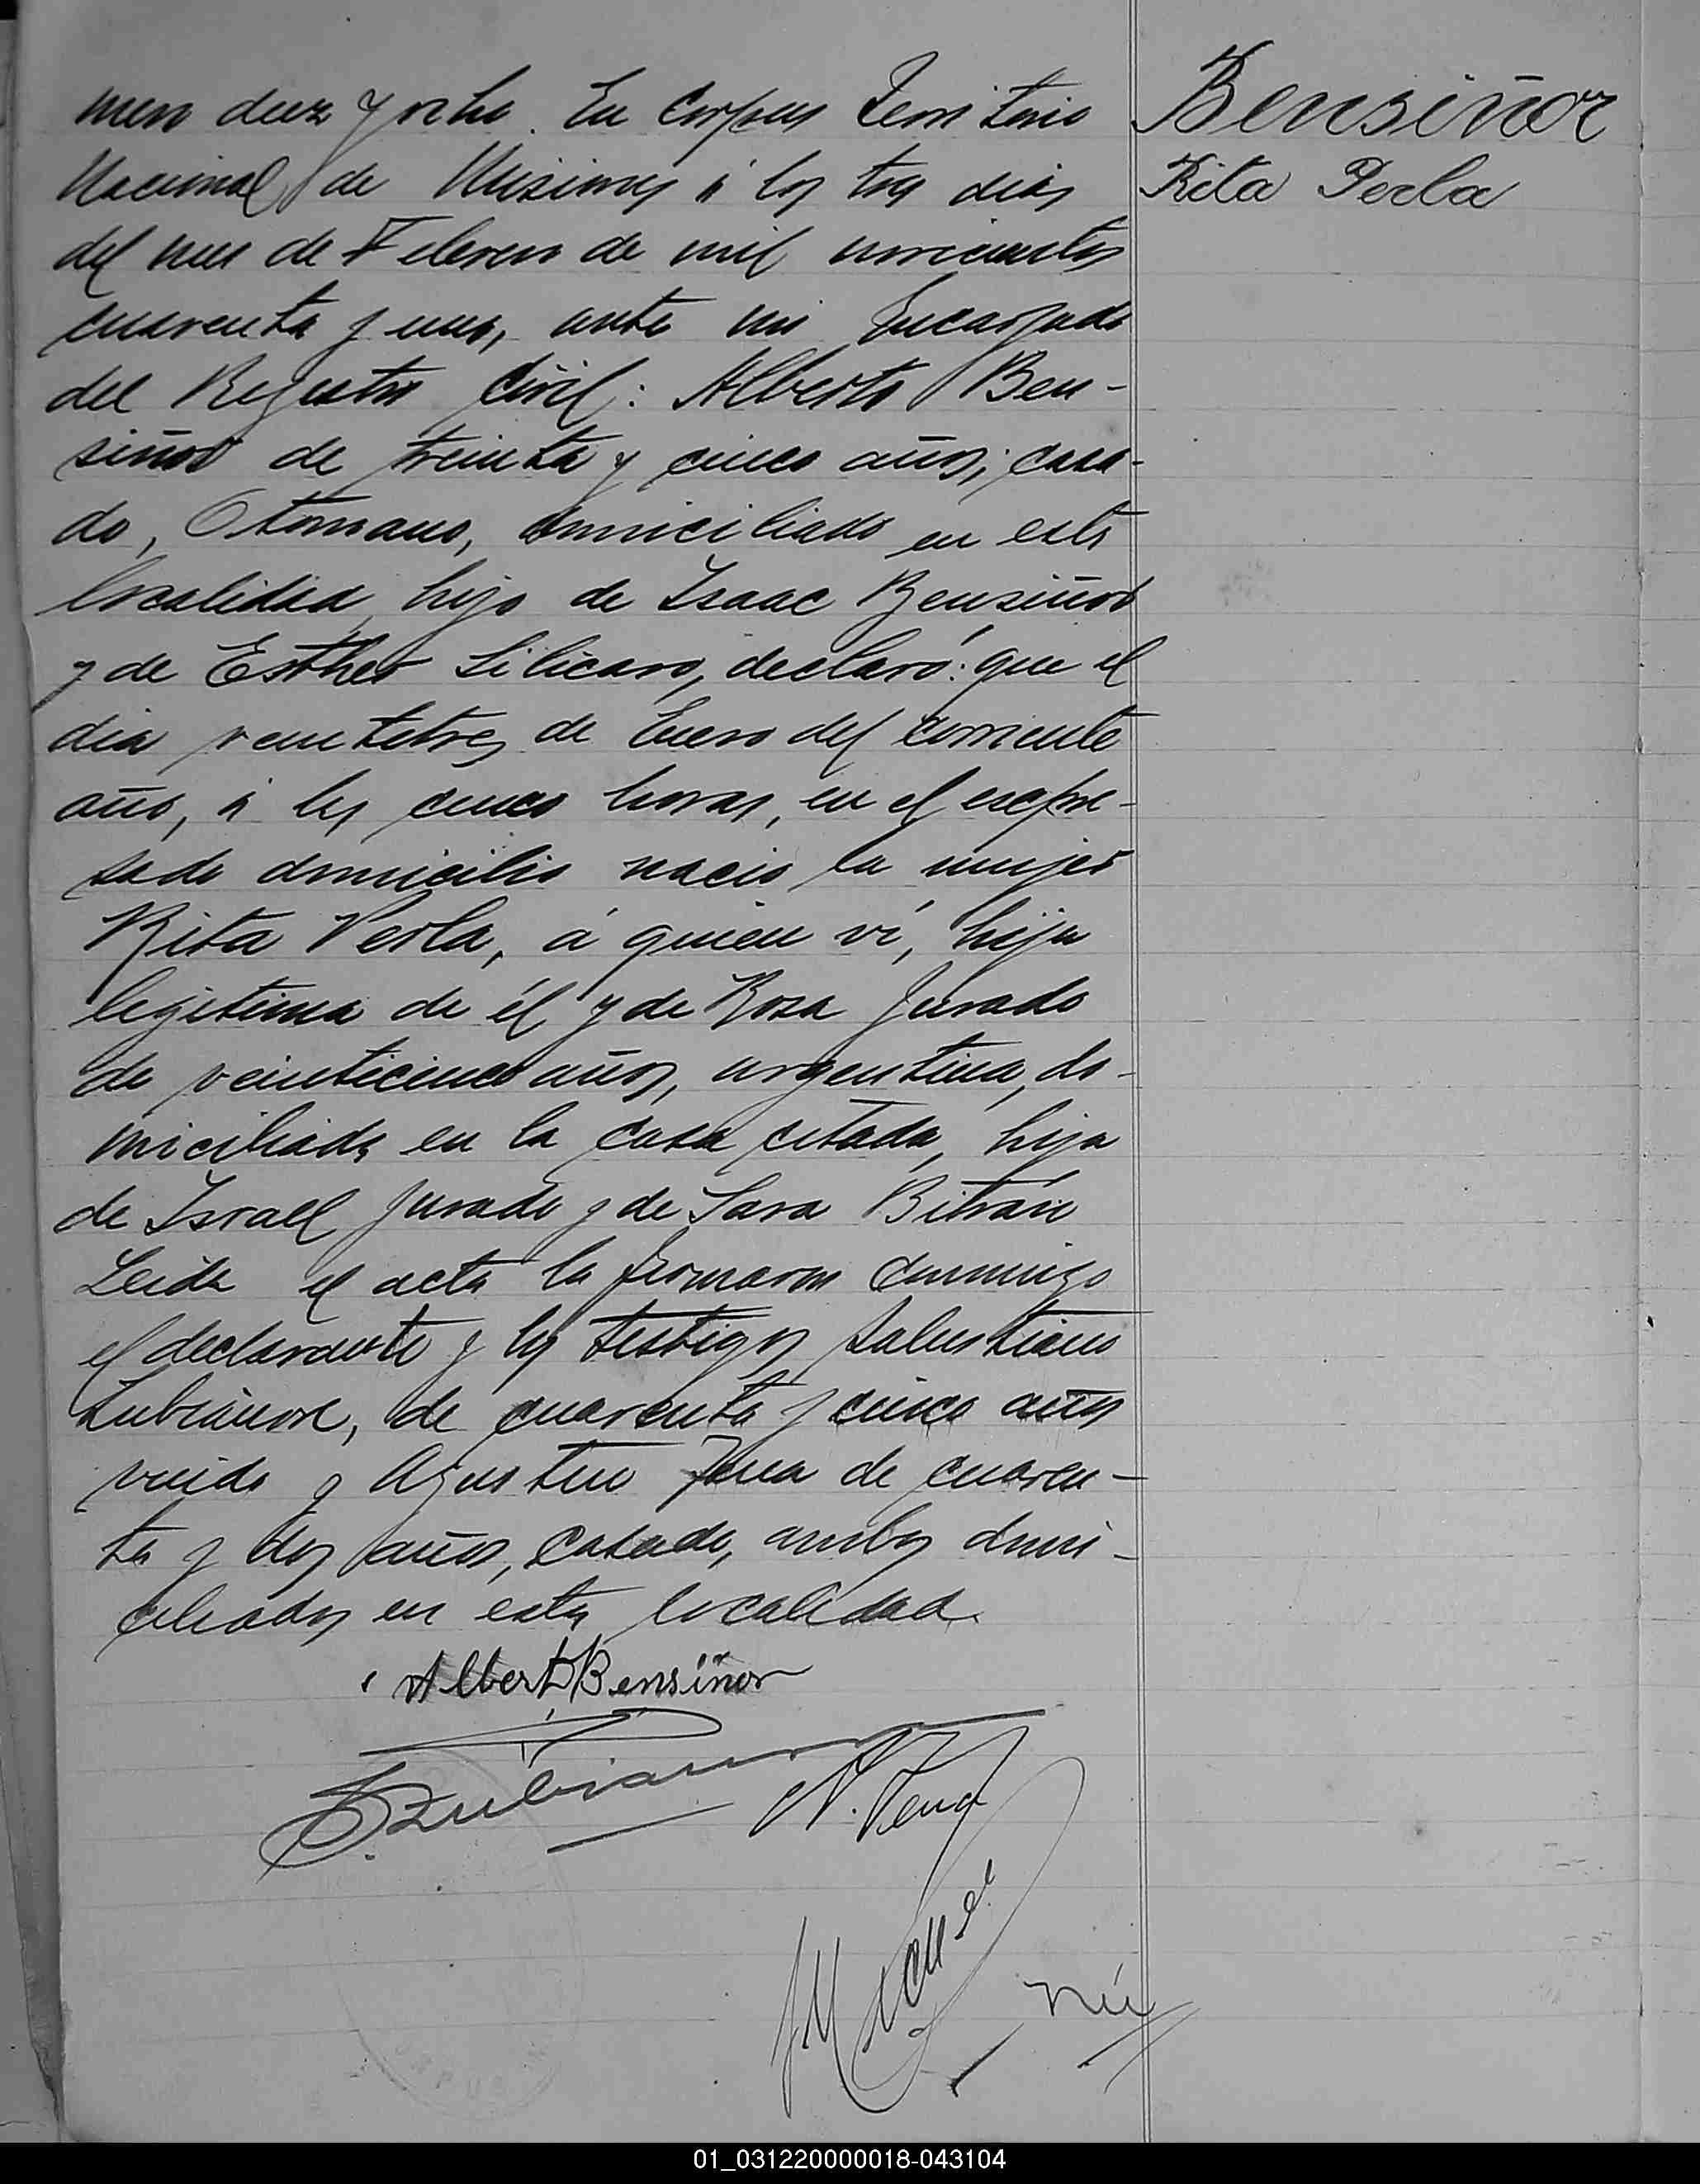 mero diez y ocho. En Corpus Territorio
Nacional de Misiones á los tres dias
del mes de Febrero de mil novecientos
cuarenta y uno, ante mi Encargado
del Registro Civil: Alberto Ben-
siñor de treinta y cinco años, casa-
do, Otomano, domiciliado en esta
localidad, hijo de Isaac Bensiñor
y de Esther Silicaro, declaró: que el
dia veintitres de Enero del corriente
año, á las cinco horas, en el expre-
sado domicilio nació la mujer
Rita Perla, á quien ví, hija
legitima de él y de Rosa Jurado
de veinticinco años, argentina, do-
miciliada en la casa citada, hija
de Israel Jurado y de Sara Bitrán
Leida el acta la firmaron conmigo
el declarante y los testigos Salustiano
de cuarenta y cinco años
viudo y Agustin de cuaren-
ta y dos años, casado, ambos domi-
ciliados en esta localidad.
Alberto Bensiñor
Bensiñor
Rita Perla
01_031220000018-043104